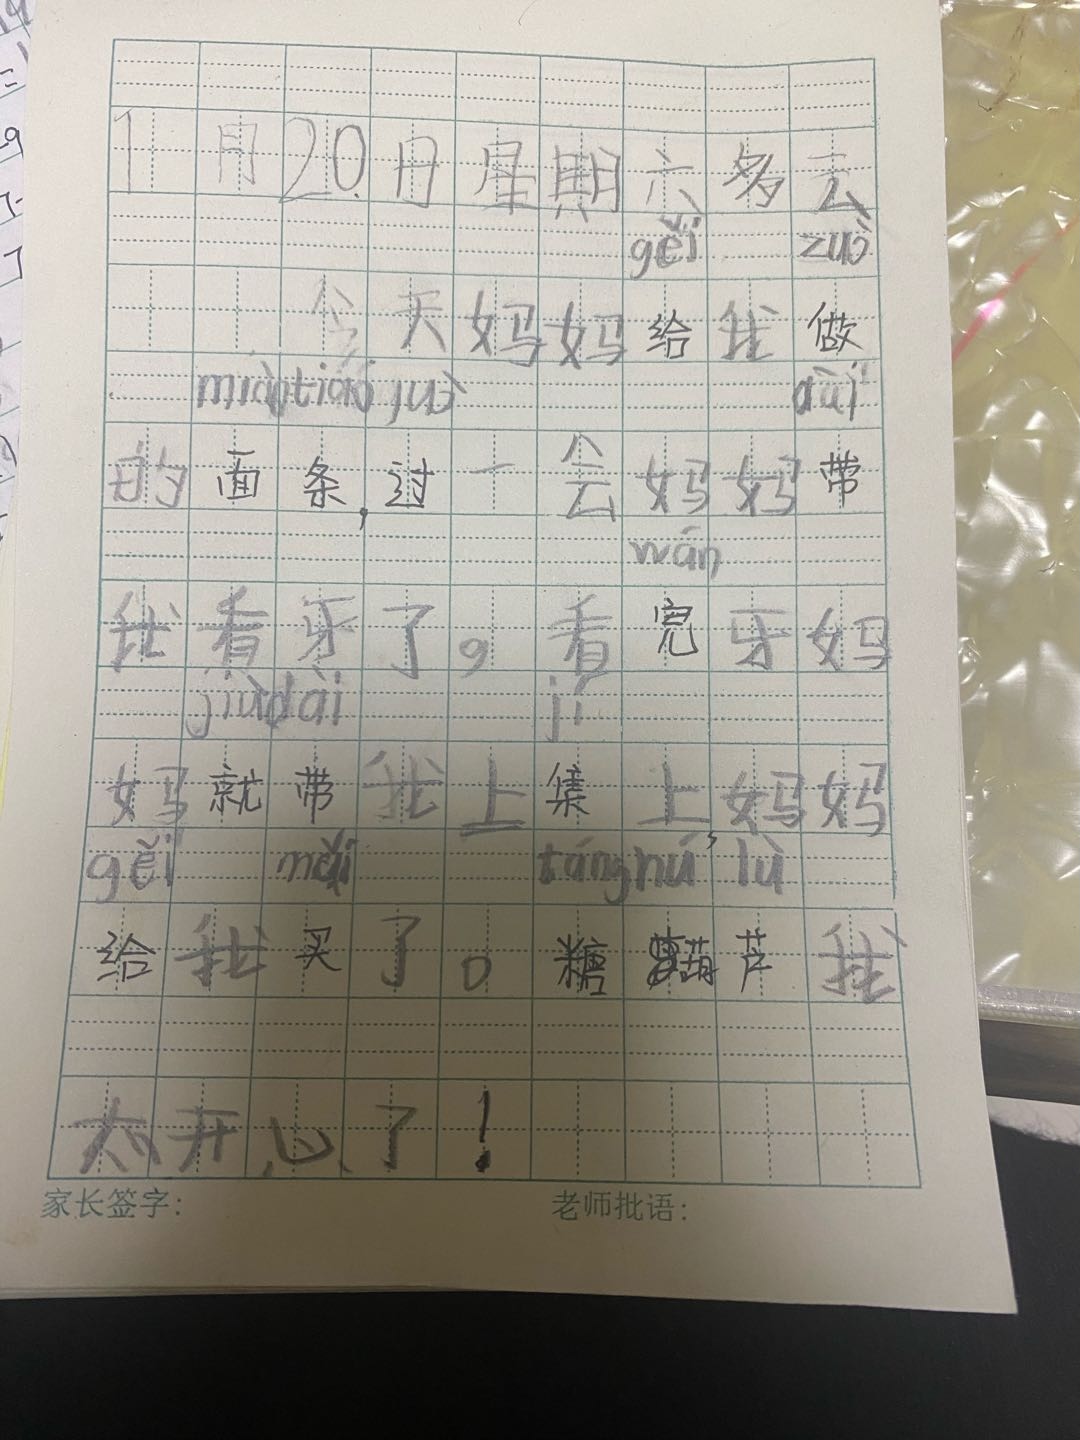 1月20日星期六多云
gěi zuò
今天妈妈给我做
miàntiáo guò dài
的面条,过一会妈妈带
wán
我看牙了。看完牙妈
jiù dài jí
妈就带我上集上,妈妈
gěi mǎi táng hú lù
给我买了。糖葫芦我
太开心了!
家长签字: 老师批语: